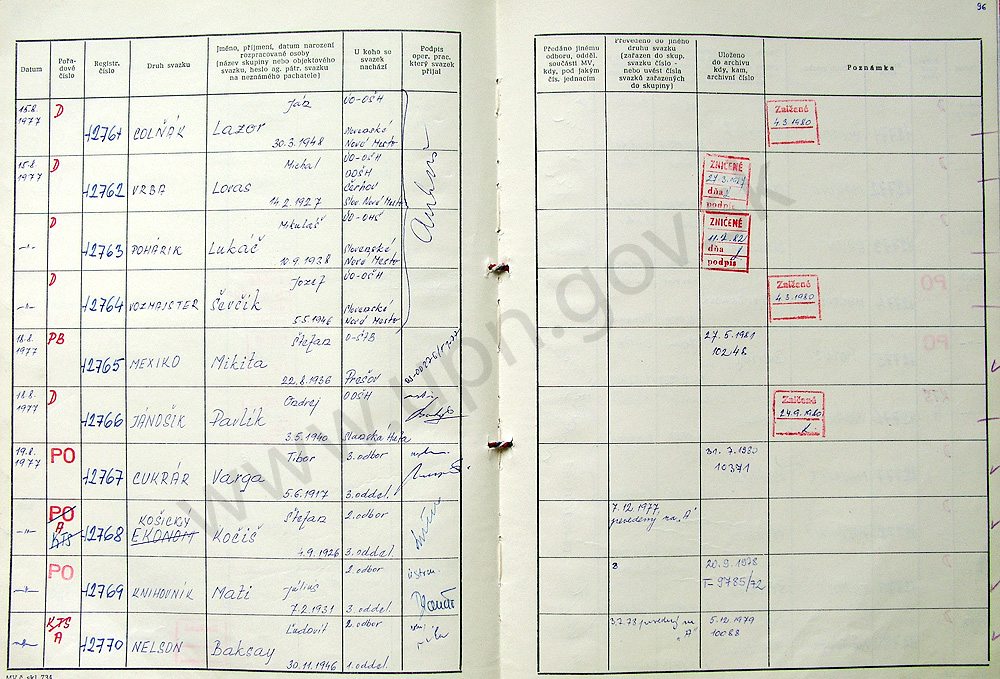 96
Datum
Pořa-
dové
číslo
Registr.
číslo
Druh svazku
Jméno, příjmení, datum narození
rozpracované osoby
(název skupiny nebo objektového
svazku, heslo ag. pátr. svazku
na neznámého pachatele)
U koho se
svazek
nachází
Podpis
oper. prac.
který svazek
přijal
Předáno jinému
odboru, odděl.
součásti MV,
kdy, pod jakým
čís. jednacím
Převedeno do jiného
druhu svazku
(zařazen do skup.
svazku číslo -
nebo uvést čísla
svazků zařazených
do skupiny)
Uloženo
do archivu
kdy, kam,
archivní číslo
Poznámka
15.8.
1977
D
12761
COLŇÁK
Ján
Lazor
30.3.1948
ÚO-OŠH
Slovenské
Nové Mesto
Zničené
4.3.1980
15.8.
1977
D
12762
VRBA
Michal
Lovas
14.2.1927
ÚO-OŠH
OOŠH
Čerňov
Slov. Nové Mesto
ZNIČENÉ
dňa
podpis
D
12763
POHÁRIK
Mikuláš
Lukáč
10.9.1938
Slovenské
Nové Mesto
ZNIČENÉ
dňa
podpis
D
12764
VOZMAJSTER
Jozef
Ševčík
5.5.1946
ÚO-OŠH
Slovenské
Nové Mesto
Zničené
4.3.1980
18.8.
1977
PB
12765
MEXIKO
Štefan
Mikita
22.8.1936
O-ŠTB
Prešov
27.5.1981
10248
18.8.
1977
D
12766
JÁNOŠIK
Ondrej
Pavlík
3.5.1940
OOŠH
Slanská Huta
Zničené
24.9.1980
19.8.
1977
PO
12767
CUKRÁR
Tibor
Varga
5.6.1917
3.odbor
3.oddel.
31.7.1980
10371
PO
A
KTS
12768
KOŠICKY
EKONOM
Štefan
Kočiš
4.9.1926
2.odbor
3.oddel.
7.12.1977
prevedený na "A"
PO
12769
KNIHOVNÍK
Július
Mati
7.2.1931
2.odbor
3.oddel.
20.9.1978
T-9785/72
KTS
A
12770
NELSON
Ľudovit
Baksay
30.11.1946
2.odbor
1.oddel.
3.7.78 prevedený na
"A"
5.12.1979
10088
www.upn.gov.sk